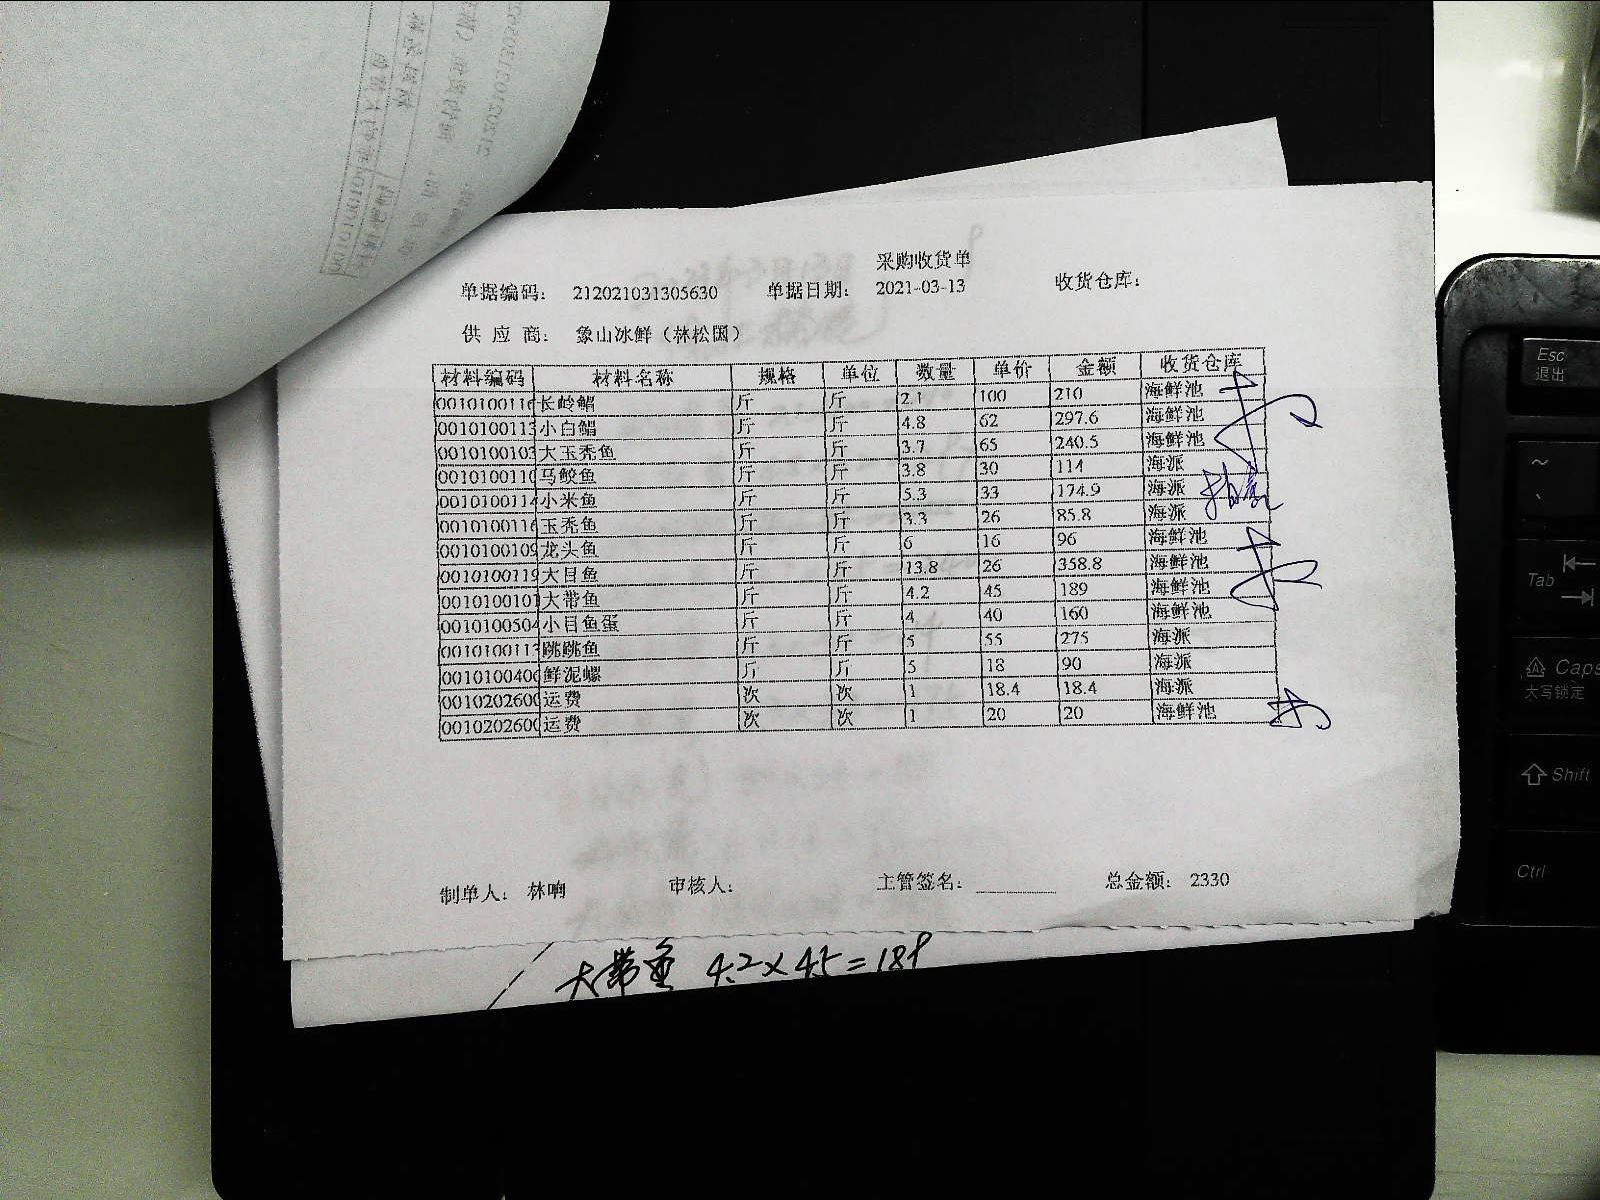 采购收货单
单据编码: 212021031305630 单据日期: 2021-03-13 收货仓库:
供 应 商: 象山冰鲜（林松国）
材料编码 材料名称 规格 单位 数量 单价 金额 收货仓库
0010100116 长岭鲳 斤 斤 2.1 100 210 海鲜池
0010100113 小白鲳 斤 斤 4.8 62 297.6 海鲜池
0010100103 大玉秃鱼 斤 斤 3.7 65 240.5 海鲜池
0010100110 马鲛鱼 斤 斤 3.8 30 114 海派
0010100114 小米鱼 斤 斤 5.3 33 174.9 海派
0010100116 玉秃鱼 斤 斤 3.3 26 85.8 海派
0010100109 龙头鱼 斤 斤 6 16 96 海鲜池
0010100119 大目鱼 斤 斤 13.8 26 358.8 海鲜池
0010100101 大带鱼 斤 斤 4.2 45 189 海鲜池
0010100504 小目鱼蛋 斤 斤 4 40 160 海鲜池
0010100113 跳跳鱼 斤 斤 5 55 275 海派
0010100400 鲜泥螺 斤 斤 5 18 90 海派
0010202600 运费 次 次 1 18.4 18.4 海派
0010202600 运费 次 次 1 20 20 海鲜池
制单人: 林响 审核人: 主管签名: 总金额: 2330
大带鱼 4.2×45=189
Esc
退出
~
Tab
Caps
大写锁定
Shift
Ctrl